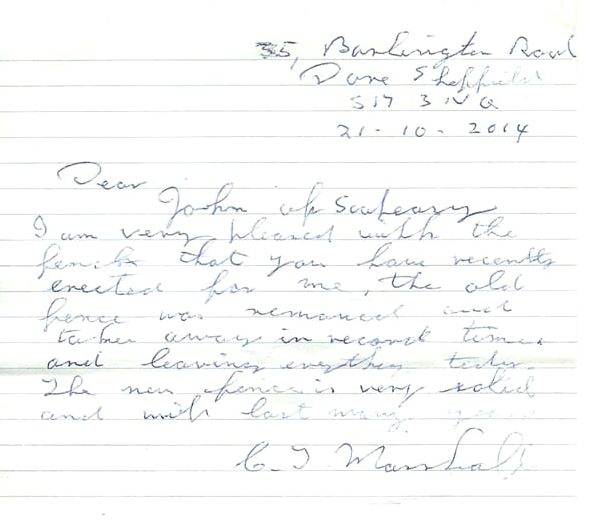 35, Barlington Road
Dore Sheffield
S17 3
21-10-2014
Dear
John of
I am very pleased with the
fence that you have recently
erected for me, the old
fence was removed and
taken away in record time
and leaving
The new fence is very solid
and with last many
C. T. Marshall